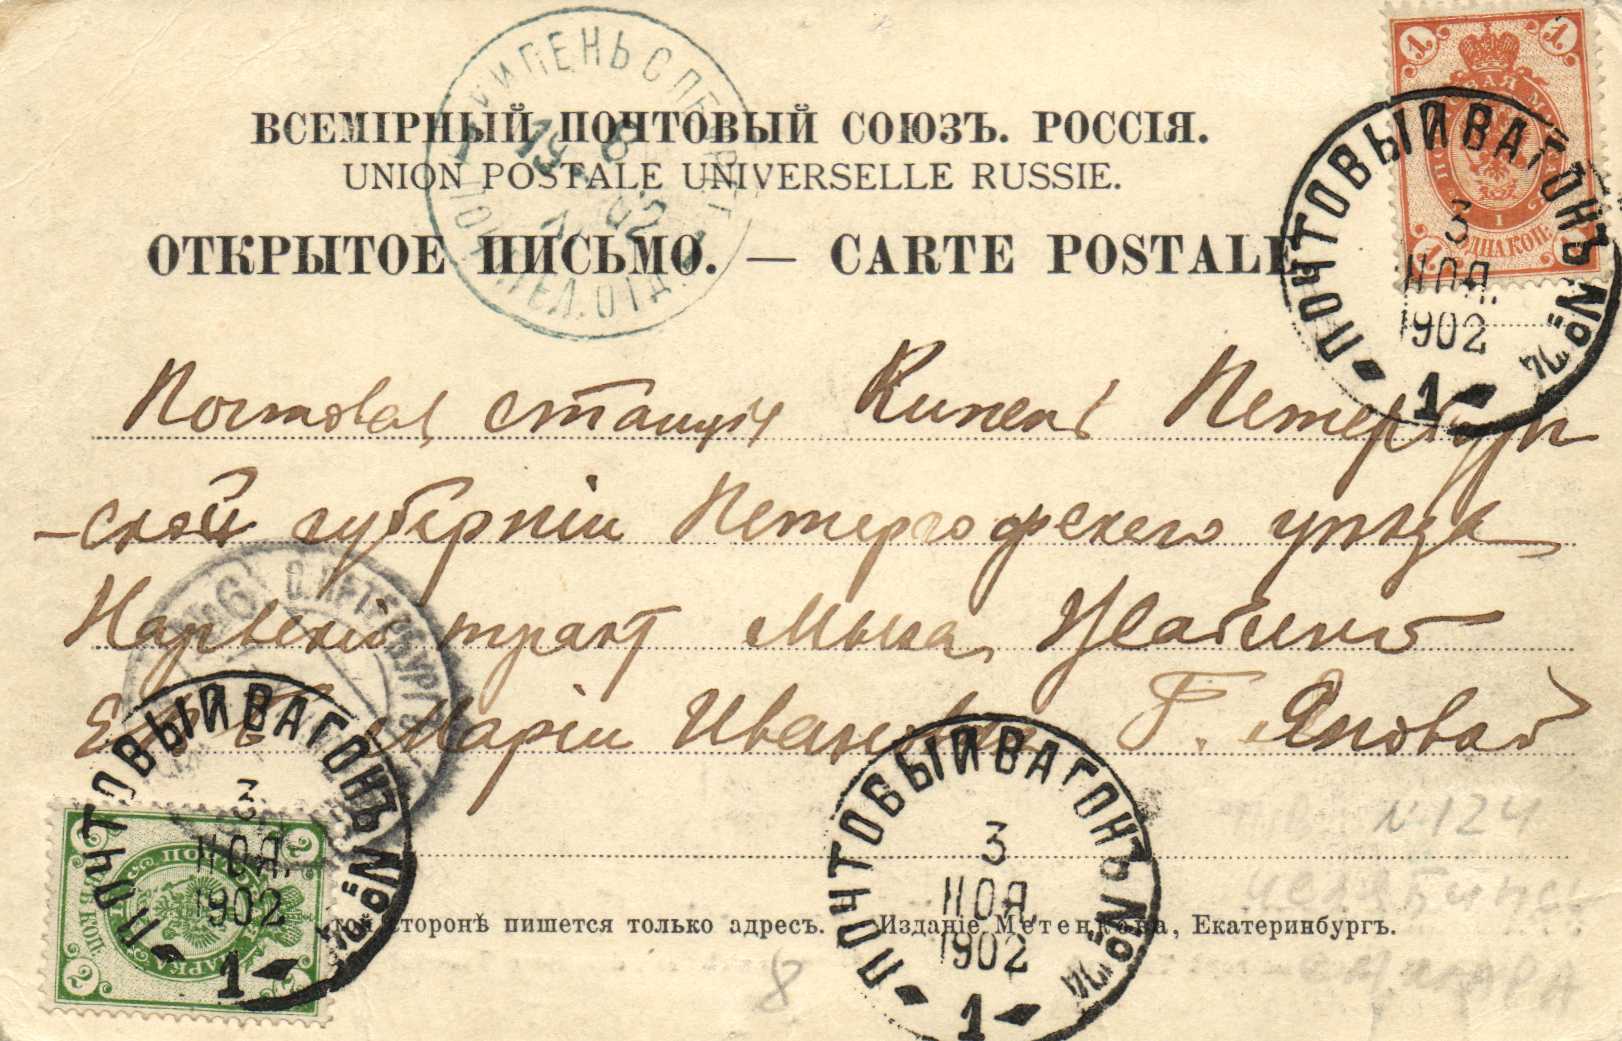 ВСЕМІРНЫЙ ПОЧТОВЫЙ СОЮЗЪ. РОССІЯ.
UNION POSTALE UNIVERSELLE RUSSIE.
ОТКРЫТОЕ ПИСЬМО. — CARTE POSTALE
КИПЕНЬ С.ПЕТ
ПОЧ. ТЕЛ. ОТД.
ПОЧТОВЫЙ ВАГОНЪ №
3
НОЯ.
1902
1
Почтовая станція Кипень Петербург
-ской губерніи Петергофскаго уѣзда
Нарвскій трактъ Мыза
Маріи Ивановнѣ Г. Яновой
С.ПЕТЕРБУРГЪ
ПОЧТОВЫЙ ВАГОНЪ №
3
НОЯ.
1902
1
ПОЧТОВЫЙ ВАГОНЪ №
3
НОЯ.
1902
1
N 124
сторонѣ пишется только адресъ. Изданіе Метенкова, Екатеринбургъ.
8